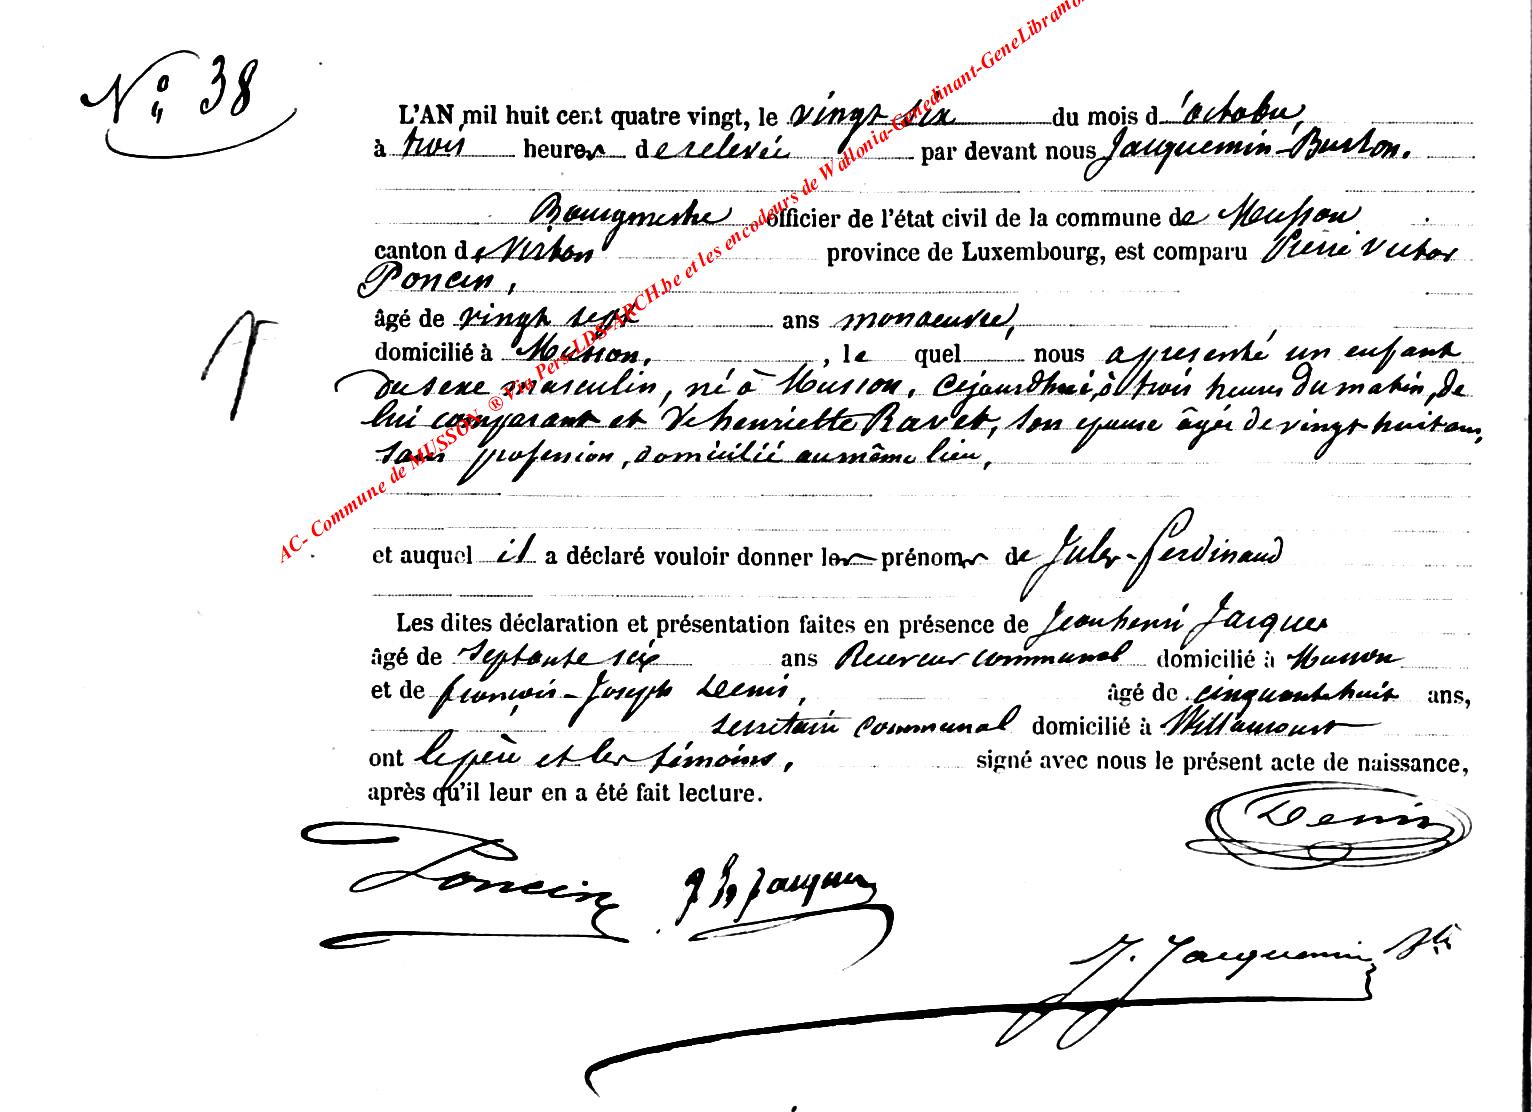 N° 38
L'AN mil huit cent quatre vingt, le vingt six du mois d'octobre,
à trois heures de relevée par devant nous Jacquemin-Burton.
Bourgmestre officier de l'état civil de la commune de Musson
canton de Virton province de Luxembourg, est comparu Pierre Victor
Poncin,
âgé de vingt sept ans manoeuvre,
domicilié à Musson, , le quel nous a presenté un enfant
du sexe masculin, né à Musson, cejourdhui, à trois heures du matin, de
lui comparant et de henriette Ravet, son epouse âgée de vingt huit ans,
sans profession, domicilié au même lieu,
et auquel il a déclaré vouloir donner les prénoms de Jules-Ferdinand
Les dites déclaration et présentation faites en présence de Jean henri Jacques
âgé de septante six ans Receveur communal domicilié à Musson
et de françois-Joseph Denis, âgé de cinquante huit ans,
secretaire communal domicilié à Willancourt
ont le père et les témoins, signé avec nous le présent acte de naissance,
après qu'il leur en a été fait lecture.
Denis
Poncin
J h Jacques
J. Jacquemin
AC- Commune de MUSSON ® Via Pers-LDS-ARCH.be et les encodeurs de Wallonia-Genedinant-GeneLibramo